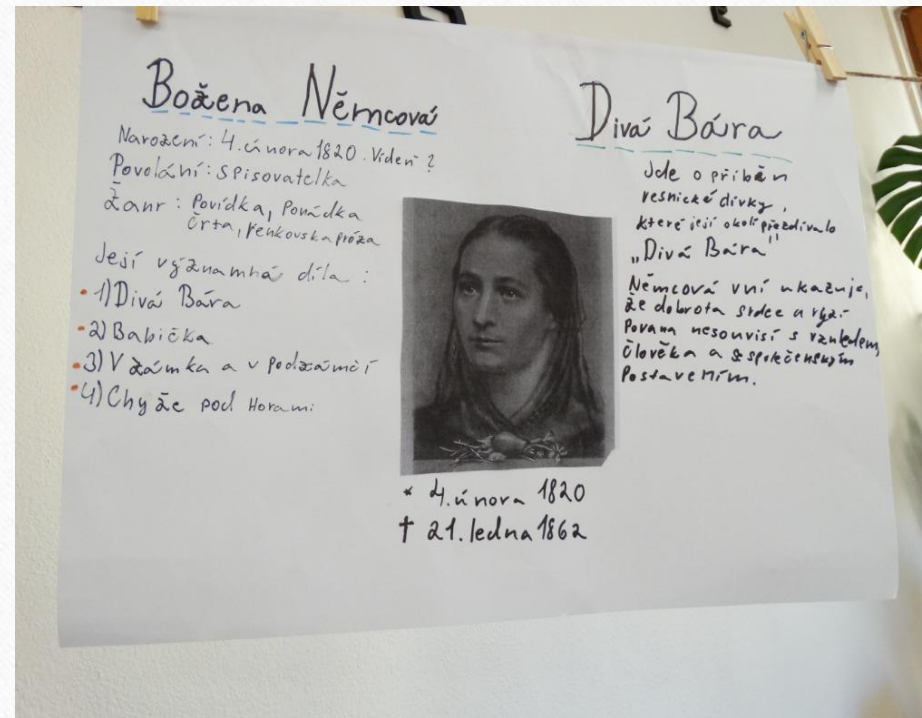 Božena Němcová
Narození: 4. února 1820. Vídeň ?
Povolání: Spisovatelka
Žanr: Povídka, Pohádka
Črta, Venkovska próza
Její významná díla :
1) Divá Bára
2) Babička
3) V zámka a v podzámčí
4) Chyže pod Horami
* 4. února 1820
† 21. ledna 1862
Divá Bára
Jde o příběh
vesnické dívky,
které její okolí přezdívalo
„Divá Bára"
Němcová v ní ukazuje,
že dobrota srdce a ryzí
Povaha nesouvisí s vzhledem
člověka a s společenským
Postavením.